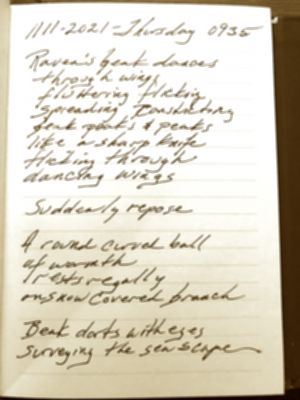 11-11-2021 - Thursday 0935
Raven's beak dances
through wings
fluttering flicking
spreading
beak & peaks
like a sharp knife
flicking through
dancing wings
Suddenly repose
A round curved ball
of warmth
rests regally
on snow covered branch
Beak darts with eyes
surveying the seascape